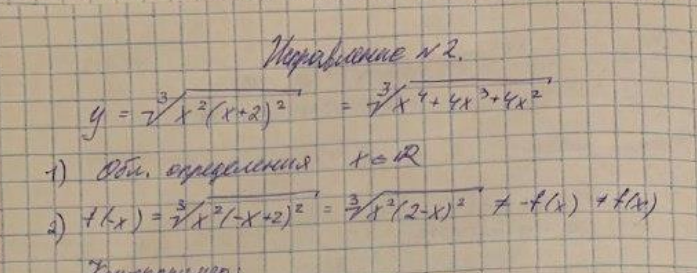 Исправление №2.
y = ∛(x²(x+2)²) = ∛(x⁴+4x³+4x²)
1) Обл. определения x∈ℝ
2) f(-x) = ∛(x²(-x+2)²) = ∛(x²(2-x)²) ≠ -f(x) ≠ f(x)